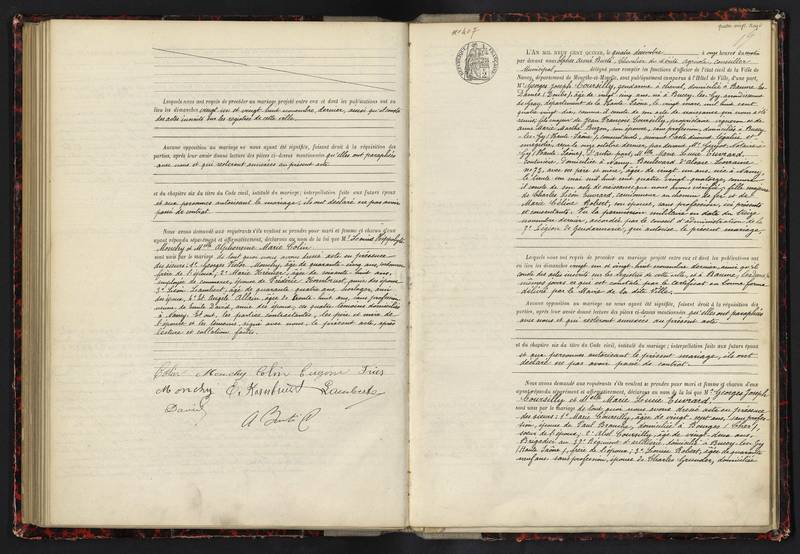 Lesquels nous ont requis de procéder au mariage projeté entre eux et dont les publications ont eu
lieu les dimanches vingt un et vingt huit novembre dernier, ainsi qu'il conste
des actes inscrits sur les registres de cette ville
Aucune opposition au mariage ne nous ayant été signifiée, faisant droit à la réquisition des
parties, après leur avoir donné lecture des pièces ci-dessus mentionnées qu'elles ont paraphées
avec nous et qui resteront annexées au présent acte
et du chapitre six du titre du Code civil, intitulé du mariage; interpellation faite aux futurs époux
et aux personnes autorisant le mariage, ils ont déclaré ne pas avoir
passé de contrat.
Nous avons demandé aux requérants s'ils veulent se prendre pour mari et femme et chacun d'eux
ayant répondu séparément et affirmativement, déclarons au nom de la loi que Mr
Monchy et Mlle Alphonsine Marie Colin
sont unis par le mariage de tout quoi nous avons dressé acte en présence
des sieurs: 1° Georges Victor Monchy, âgé de quarante cinq ans,
frère de l'époux, 2° Marie âgé de soixante huit ans,
employé de commerce,
3° Léon Lambert, âgé de quarante quatre ans, horloger, ami
des époux, 4° et âgée de trente huit ans, sans profession
amie des époux, ces quatre témoins domiciliés
à Nancy. Et ont, les parties contractantes, les père et mère de
l'épouse et les témoins, signé avec nous, le présent acte, après
lecture et collation faites.
Colin Monchy Colin Eugénie
Monchy E. Lambert
David
quatre vingt
N° 407
RÉPUBLIQUE FRANÇAISE
L'AN MIL NEUF CENT QUINZE, le quatre décembre à onze heures du matin
par devant nous Chevalier du mérite agricole, Conseiller
Municipal, délégué pour remplir les fonctions d'officier de l'état civil de la Ville de
Nancy, département de Meurthe-et-Moselle, sont publiquement comparus à l'Hôtel de Ville, d'une part,
Mr Georges Joseph Coursilly, gendarme à cheval, domicilié à Baume les
Dames (Doubs), âgé de vingt cinq ans, né à Bucey-les-Gy, arrondissement
de Gray, département de la Haute Saône, le vingt mars mil huit cent
quatre vingt dix, comme il conste de son acte de naissance qui nous a été
remis, fils majeur de Jean François Coursilly, propriétaire vigneron et de
Anne Marie son épouse, sans profession, domiciliés à Bucey-
les-Gy (Haute Saône), consentants, suivant l'acte dressé légalisé et
enregistré, reçu le vingt octobre dernier, par devant Me Notaire à
Gy (Haute Saône). D'autre part, Mlle Marie Louise Tuvrard,
couturière, domiciliée à Nancy Boulevard d'Alsace Lorraine
n° 73, avec ses père et mère, âgée de vingt un ans, née à Nancy,
le trente un mai mil huit cent quatre vingt quatorze, comme
il conste de son acte de naissance que nous avons vérifié; fille majeure
de Charles Léon Tuvrard, cantonnier au chemin de fer et de
Marie Céline Robert, son épouse, sans profession, ici présents
et consentants. Vu la permission militaire en date du treize
novembre dernier, accordée par le conseil d'administration de la
7e Légion de gendarmerie, qui autorise le présent mariage,
Lesquels nous ont requis de procéder au mariage projeté entre eux et dont les publications ont eu
lieu les dimanches vingt un et vingt huit novembre dernier, ainsi qu'il
conste des actes inscrits sur les registres de cette ville, et à Baume, les
mêmes jours ce qui est constaté par le certificat en bonne forme
délivré par le Maire de la dite Ville;
Aucune opposition au mariage ne nous ayant été signifiée, faisant droit à la réquisition des
parties, après leur avoir donné lecture des pièces ci-dessus mentionnées qu'elles ont paraphées
avec nous et qui resteront annexées au présent acte
et du chapitre six du titre du Code civil, intitulé du mariage; interpellation faite aux futurs époux
et aux personnes autorisant le présent mariage, ils ont
déclaré ne pas avoir passé de contrat.
Nous avons demandé aux requérants s'ils veulent se prendre pour mari et femme et chacun d'eux
ayant répondu séparément et affirmativement, déclarons au nom de la loi que Mr Georges Joseph
Coursilly et Mlle Marie Louise Tuvrard,
sont unis par le mariage de tout quoi nous avons dressé acte en présence
des sieurs: 1° Marie Coursilly, âgée de vingt sept ans, sans profes-
sion, épouse de Paul domiciliée à Bourges (Cher),
soeur de l'époux; 2° Abel Coursilly, âgé de vingt deux ans,
Brigadier au Régiment d'artillerie domicilié à Bucey-les-Gy
(Haute Saône), frère de l'époux; 3° Louise Robert, âgée de quarante
neuf ans sans profession, épouse de Charles domiciliée